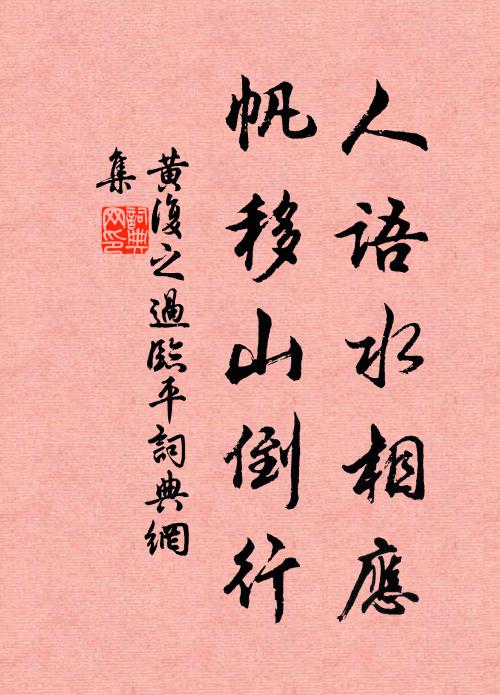 人語水相應
帆移山倒行
黃復之過臨平詞典網
集
詞典
网印